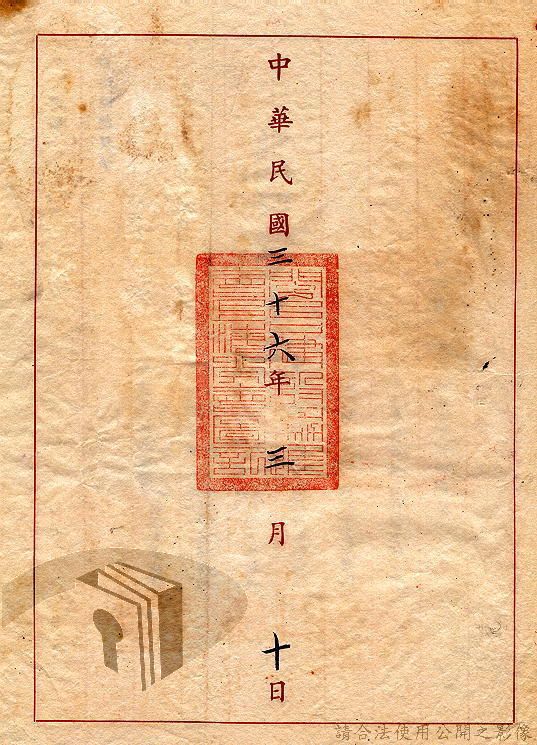 中華民國三十六年三月十日
請合法使用公開之影像